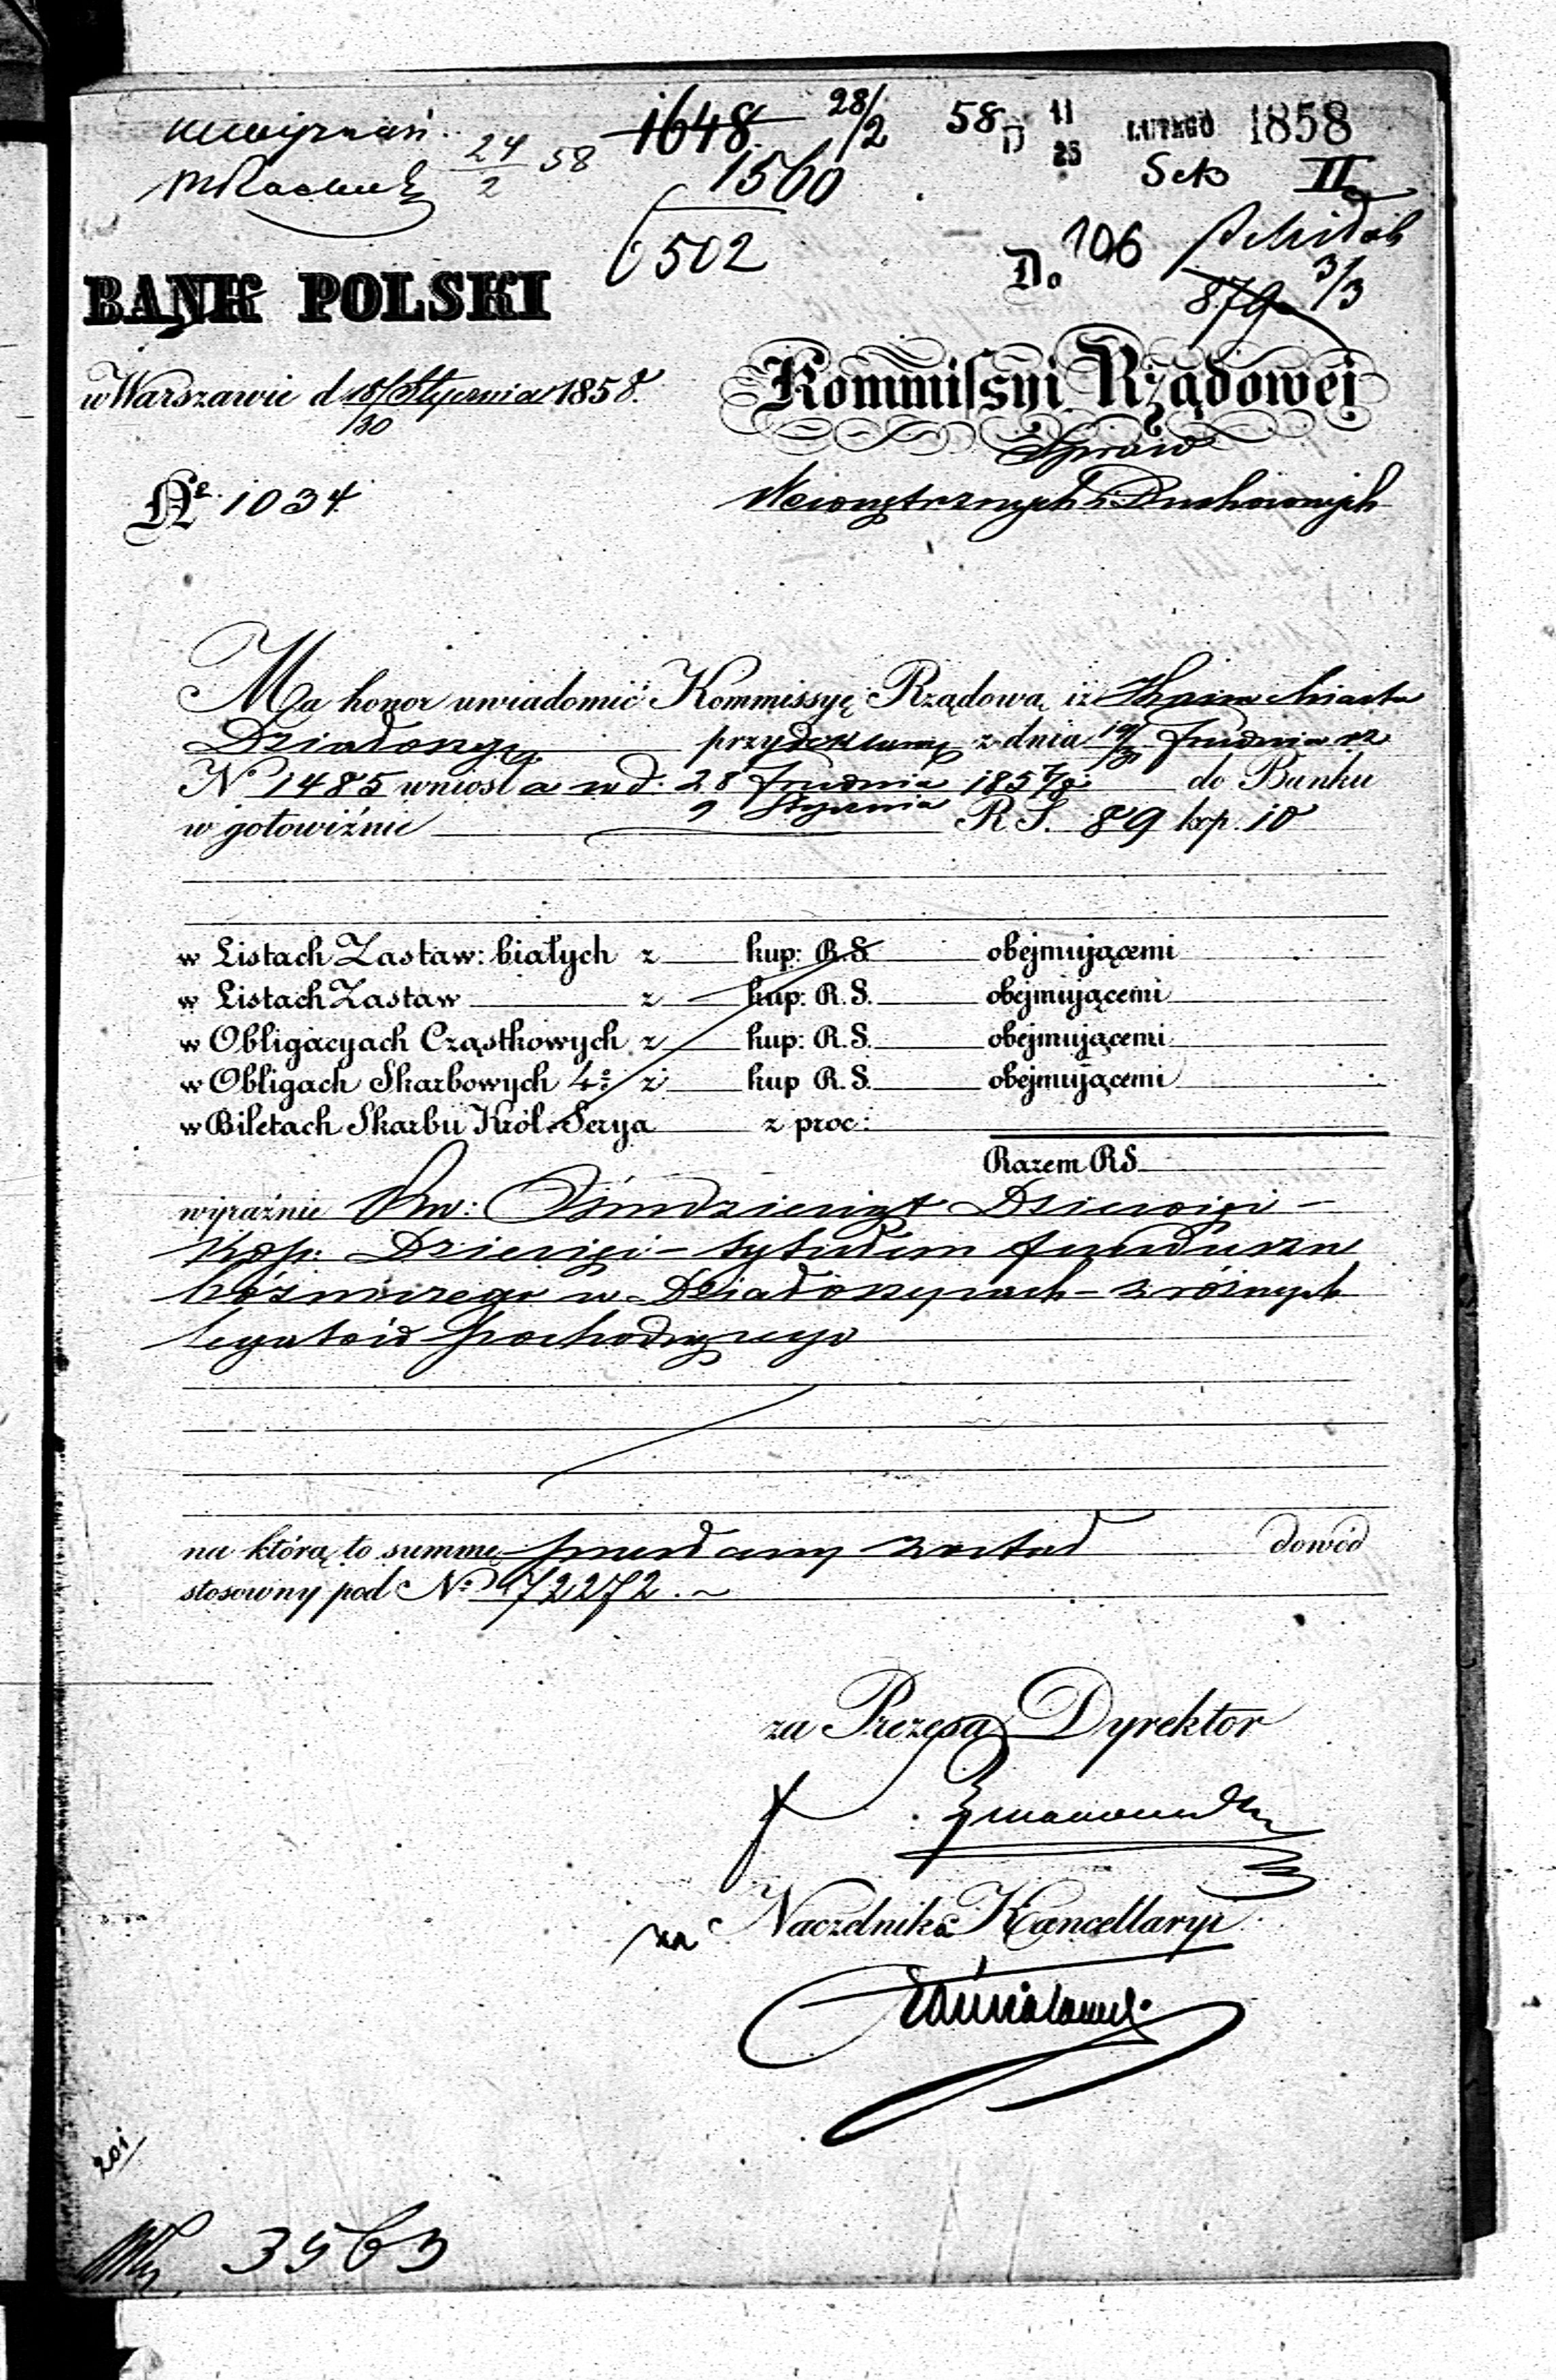 24/2 58
1648
28/2
58
11
23
LUTEGO 1858
1560
Sek II
502
Do
106
879 3/3
BANK POLSKI
Kommissyi Rządowej
w Warszawie d 18/30 Stycznia 1858.
Spraw
Wewnętrznych i Duchownych
Nº 1034
Ma honor uwiadomić Kommissyę Rządową iż Kassa Miasta
Działoszyc przy deklaracyi z dnia 19/31 Grudnia
Nº 1485 wniosła w d. 28 Grudnia 1857/8 do Banku
9 Stycznia
w gotowiźnie R S. 89 kop. 10
w Listach Zastaw: białych z kup: R.S. obejmującemi
w Listach Zastaw z kup: R.S. obejmującemi
w Obligacyach Cząstkowych z kup: R.S. obejmującemi
w Obligach Skarbowych 4º z kup R.S. obejmującemi
w Biletach Skarbu Król. Serya z proc:
Razem RS
wyraźnie Ośmdziesiąt Dziewięć
Kop: Dziesięć – tytułem funduszu
bóżniczego w Działoszycach – z różnych
legatów pochodzącego
na którą to summę został dowód
stosowny pod Nº 72272. ~
za Prezesa Dyrektor
za Naczelnika Kancellaryi
201
3563